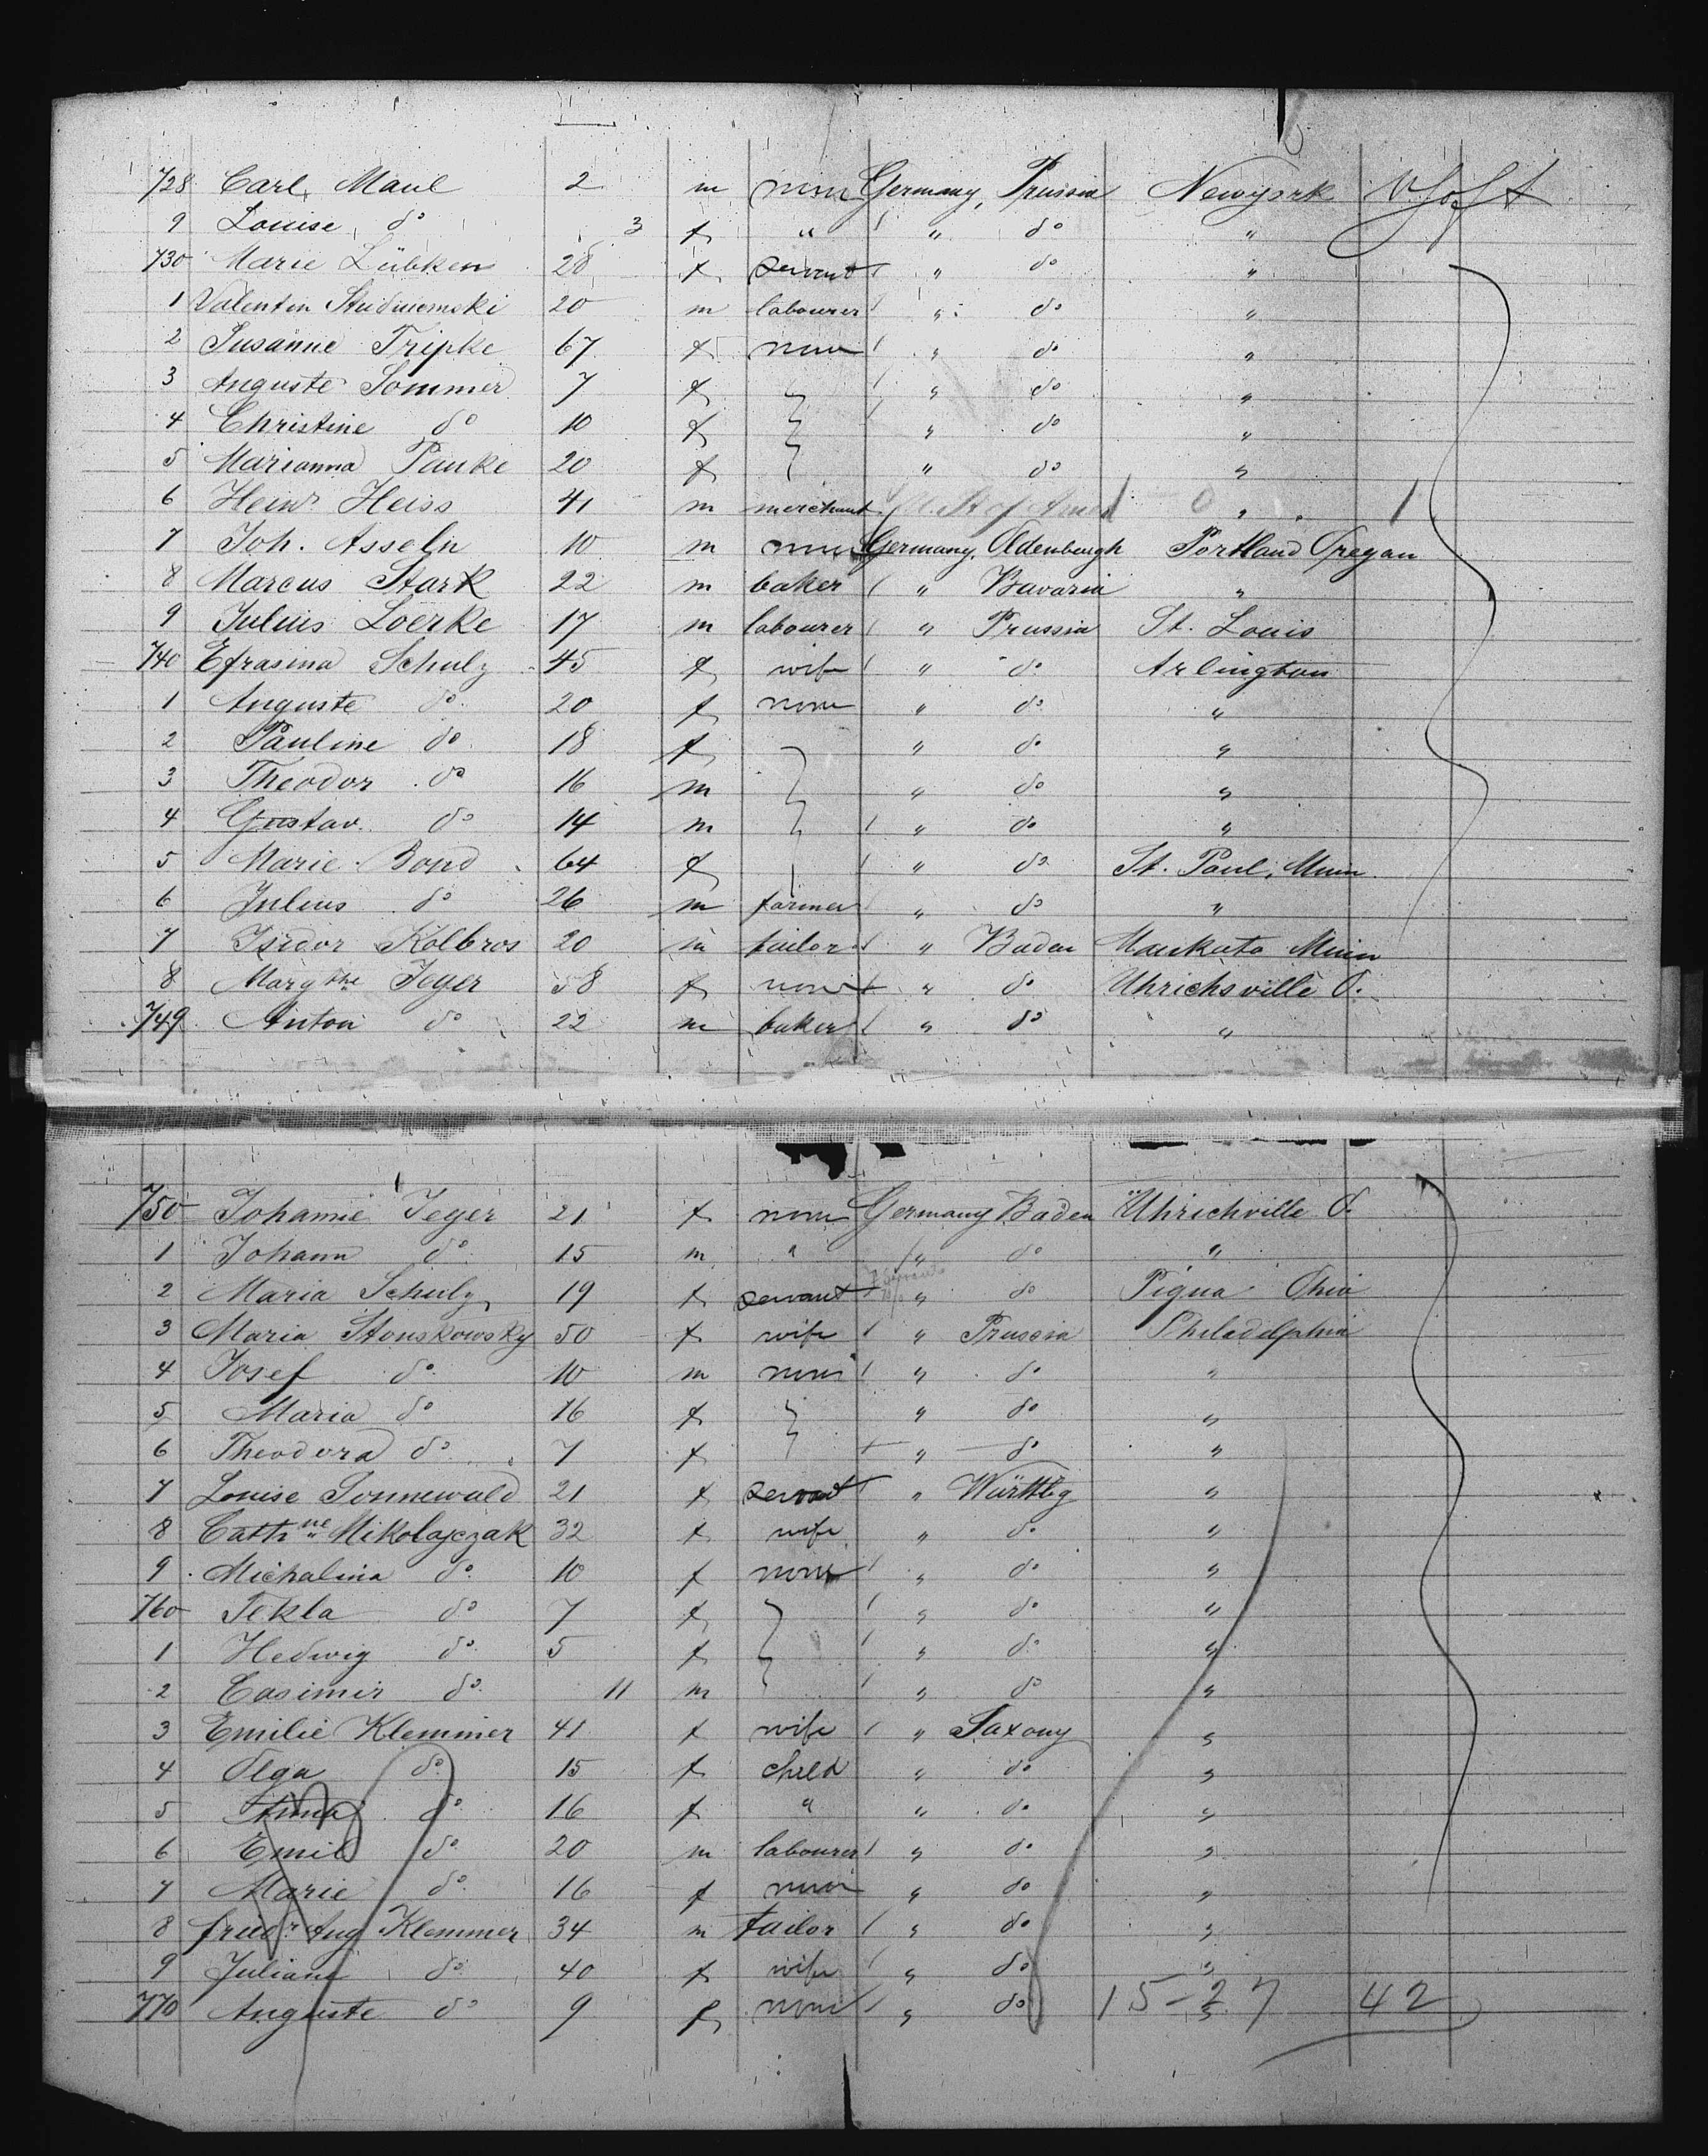 728 Carl Maul 2 m none Germany, Prussia Newyork
9 Louise do 3 f " " do "
730 Marie Lübken 28 f servant " do "
1 Valentin 20 m labourer " do "
2 Susanne Tripke 67 f none " do "
3 Auguste Sommer 7 f " do "
4 Christine do 10 f " do "
5 Marianna Pauke 20 f " do "
6 Heinr Heiss 41 m merchant U. St of Amer "
7 Joh. Asseln 10 m none Germany, Oldenburgh Portland Oregan
8 Marcus Stark 22 m baker " Bavaria "
9 Julius Loerke 17 m labourer " Prussia St. Louis
740 Efrasina Schulz 45 f wife " do Arlington
1 Auguste do 20 f none " do "
2 Pauline do 18 f " do "
3 Theodor do 16 m " do "
4 Gustav do 14 m " do "
5 Marie Bond 64 f " do St. Paul, Minn
6 Julius do 26 m farmer " do "
7 Isidor Kolbros 20 m tailor " Baden Mankato Minn
8 Margthe Jeger 58 f none " do Uhrichsville O.
749 Anton do 22 m baker " do "
750 Johanne Jeger 21 f none Germany Baden Uhrichville O.
1 Johann do 15 m " " do "
2 Maria Schulz 19 f servant " do Piqua Ohio
3 Maria Stonskowsky 50 f wife " Prussia Philadelphia
4 Josef do 10 m none " do "
5 Maria do 16 f " do "
6 Theodora do 7 f " do "
7 Louise Sonnewald 21 f servant " Württbg "
8 Cathne Mikolajczak 32 f wife " do "
9 Michalina do 10 f none " do "
760 Tekla do 7 f " do "
1 Hedwig do 5 f " do "
2 Casimir do 11 m " do "
3 Emilie Klemmer 41 f wife " Saxony "
4 Olga do 15 f child " do "
5 Anna do 16 f " " do "
6 Emil do 20 m labourer " do "
7 Marie do 16 f none " do "
8 Friedr Aug Klemmer 34 m tailor " do "
9 Juliane do 40 f wife " do "
770 Auguste do 9 f none " do " 15-27 42